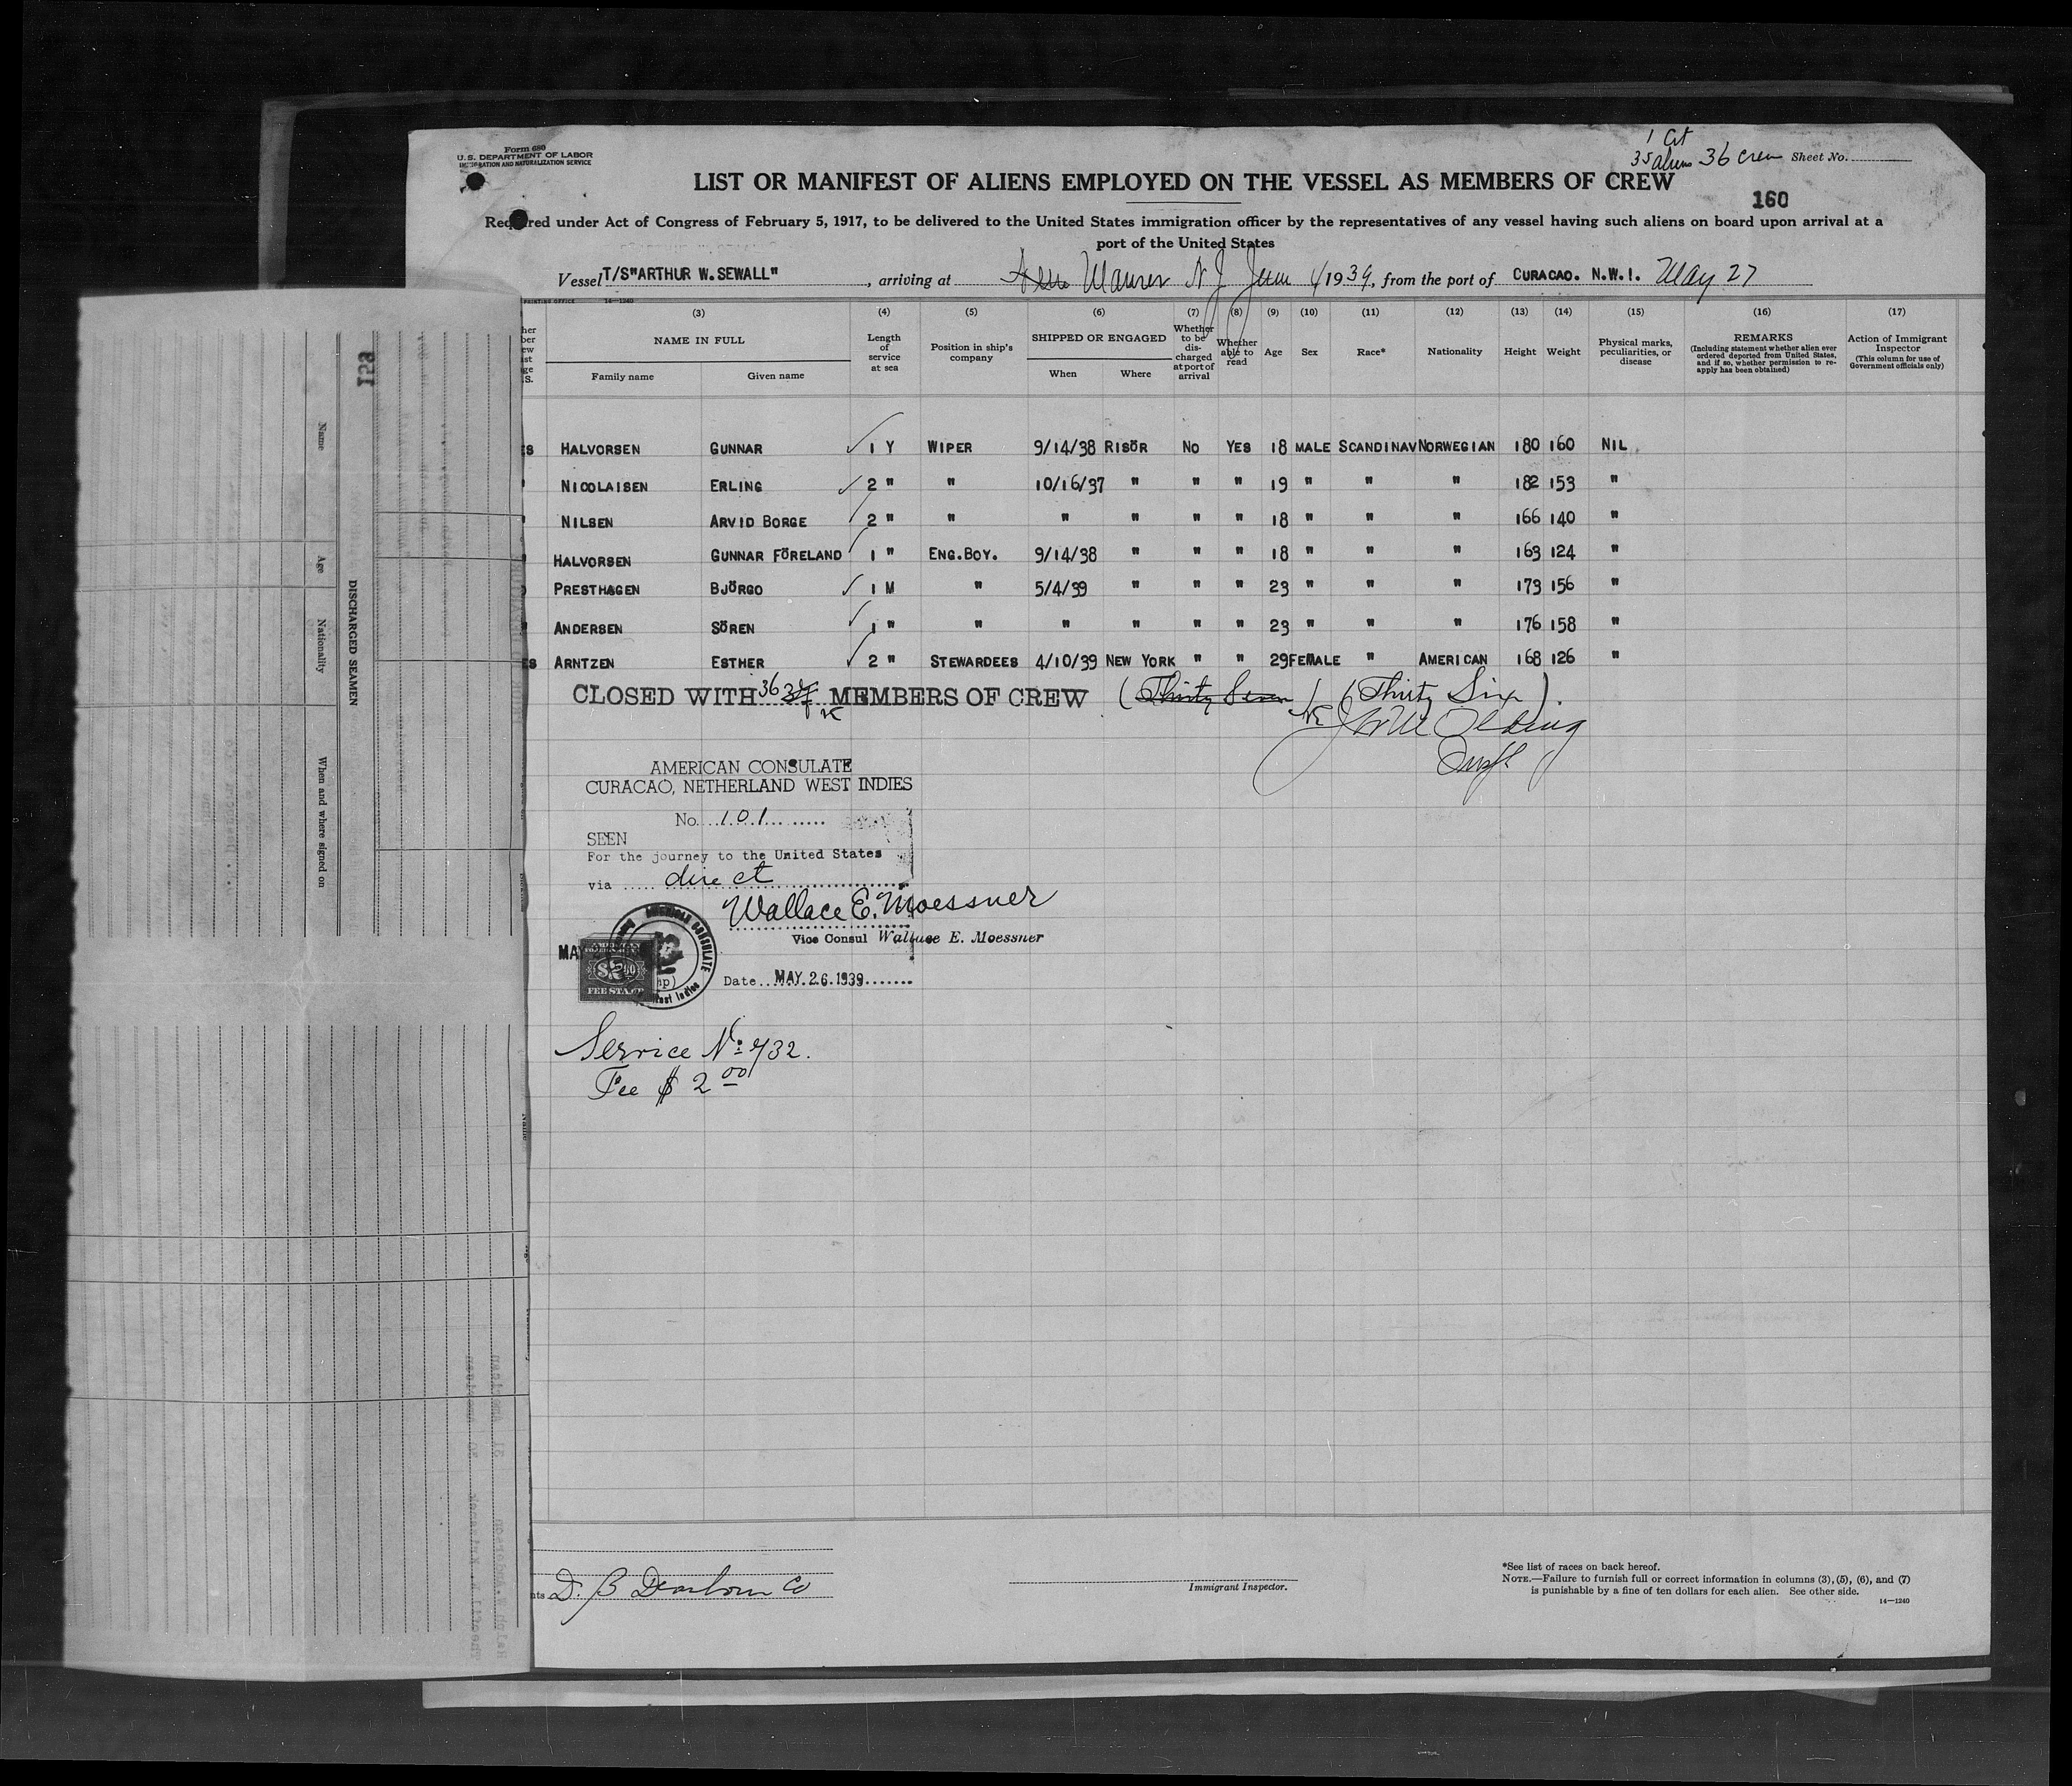 Form 680
U.S. DEPARTMENT OF LABOR
IMMIGRATION AND NATURALIZATION SERVICE
1 Cit
35 aliens 36 crew Sheet No.
LIST OR MANIFEST OF ALIENS EMPLOYED ON THE VESSEL AS MEMBERS OF CREW
160
Required under Act of Congress of February 5, 1917, to be delivered to the United States immigration officer by the representatives of any vessel having such aliens on board upon arrival at a
port of the United States
Vessel T/S"ARTHUR W. SEWALL", arriving at Maurer N J June 1939, from the port of CURACAO. N.W.I. May 27
PRINTING OFFICE 14—1240
(3) (4) (5) (6) (7) (8) (9) (10) (11) (12) (13) (14) (15) (16) (17)
NAME IN FULL Length of service at sea Position in ship's company SHIPPED OR ENGAGED Whether to be discharged at port of arrival Whether able to read Age Sex Race* Nationality Height Weight Physical marks, peculiarities, or disease REMARKS (Including statement whether alien ever ordered deported from United States, and if so, whether permission to reapply has been obtained) Action of Immigrant Inspector (This column for use of Government officials only)
Family name Given name When Where
HALVORSEN GUNNAR 1 Y WIPER 9/14/38 RISÖR NO YES 18 MALE SCANDINAV NORWEGIAN 180 160 NIL
" NICOLAISEN ERLING 2 " " 10/16/37 " " " 19 " " " 182 153 "
NILSEN ARVID BORGE 2 " " " " " " 18 " " " 166 140 "
HALVORSEN GUNNAR FÖRELAND 1 " ENG.BOY. 9/14/38 " " " 18 " " " 163 124 "
PRESTHAGEN BJÖRGO 1 M " 5/4/39 " " " 23 " " " 173 156 "
ANDERSEN SÖREN 1 " " " " " " 23 " " " 176 158 "
ARNTZEN ESTHER 2 " STEWARDEES 4/10/39 NEW YORK " " 29 FEMALE " AMERICAN 168 126 "
CLOSED WITH 36 37 MEMBERS OF CREW (Thirty Seven) (Thirty Six)
AMERICAN CONSULATE
CURACAO, NETHERLAND WEST INDIES
No. 101
SEEN
For the journey to the United States
via direct
Wallace E. Moessner
Vice Consul Wallace E. Moessner
AMERICAN CONSULATE
FEE STAMP
Date MAY. 26. 1939
Service No: 732.
Fee $ 2 00
D. B. Dearborn Co
Immigrant Inspector.
*See list of races on back hereof.
NOTE.—Failure to furnish full or correct information in columns (3), (5), (6), and (7)
is punishable by a fine of ten dollars for each alien. See other side.
14—1240
DISCHARGED SEAMEN
Name Age Nationality When and where signed on